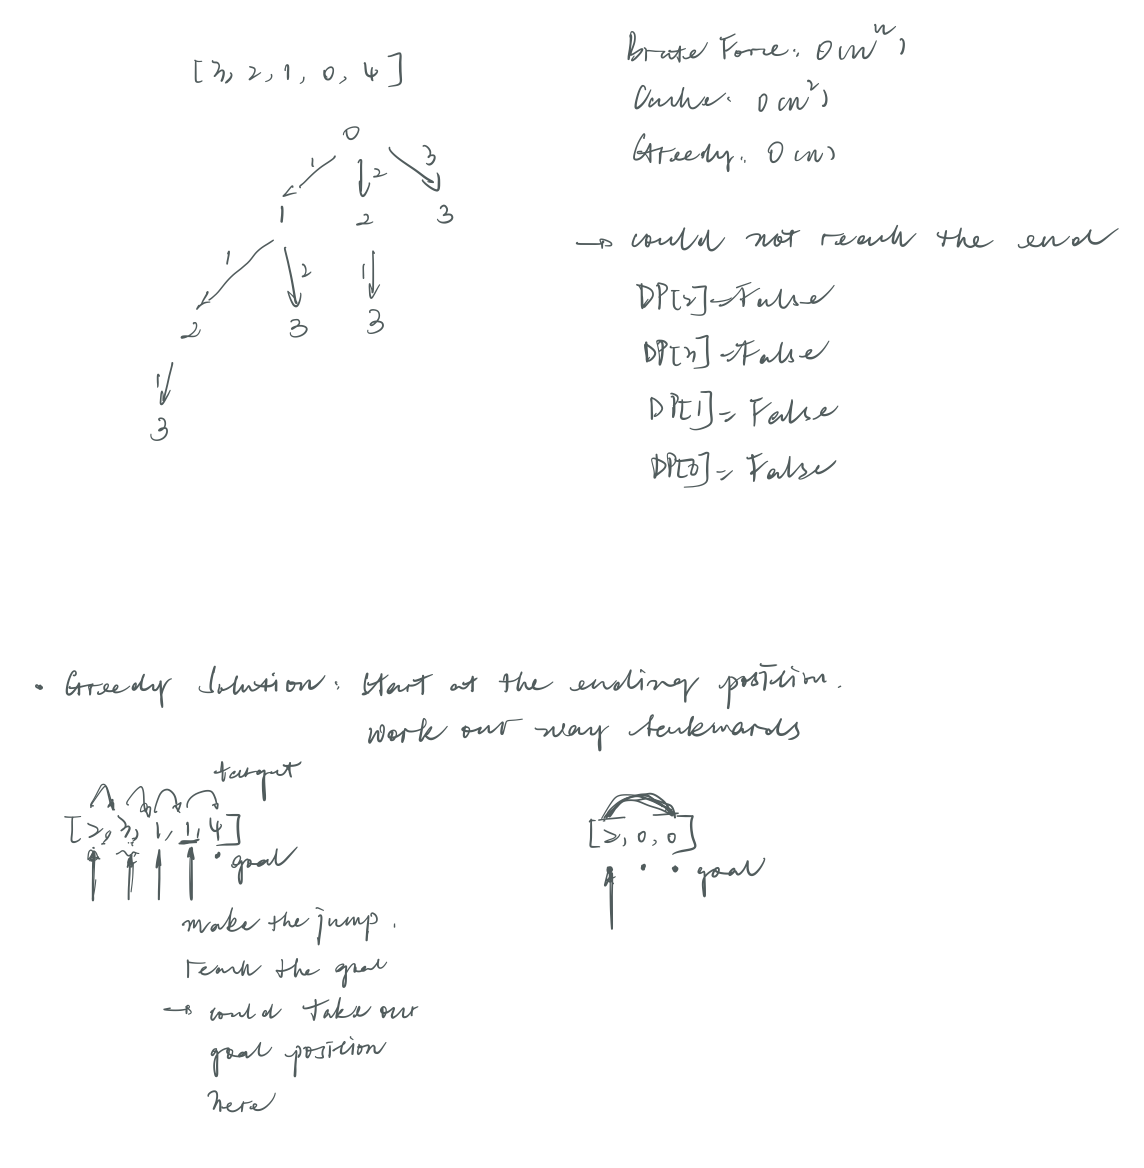 [3, 2, 1, 0, 4]
0
1 2 3
1 2 3
1 2 1
2 3 3
1
3
Brute Force: O(n^n)
Cache: O(n^2)
Greedy: O(n)
→ could not reach the end
DP[2]=False
DP[3]=False
DP[1]=False
DP[0]=False
• Greedy Solution: Start at the ending position.
work our way backwards
target
[2, 3, 1, 1, 4]
goal
make the jump.
reach the goal
→ could take our
goal position
here
[2, 0, 0]
goal